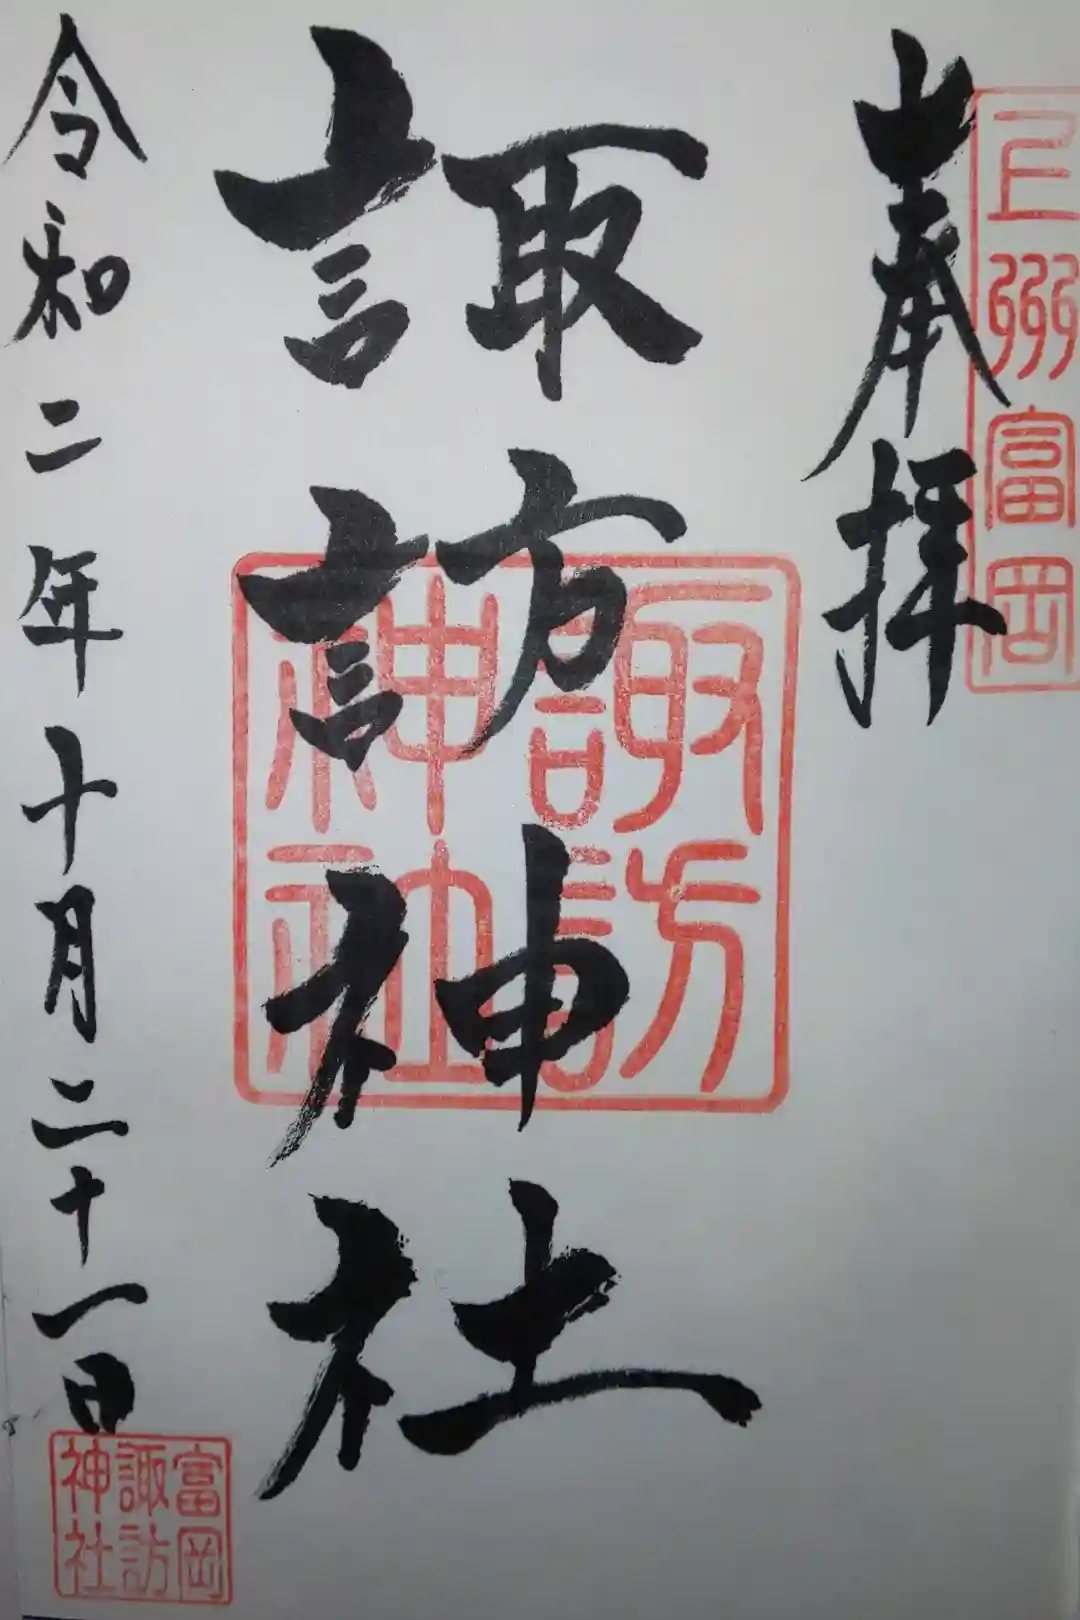 上州富岡
奉拝
諏訪神社
諏訪神社
令和二年十月二十一日
富岡
諏訪
神社